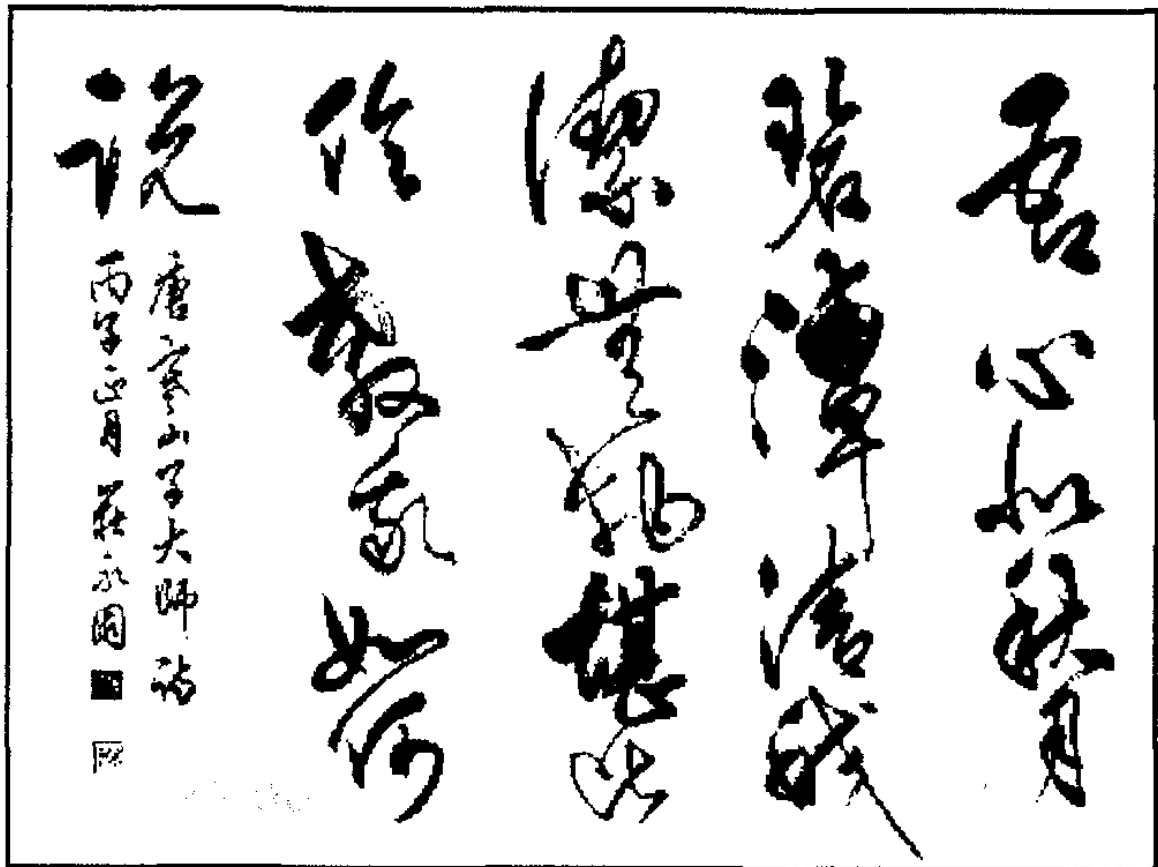 吾心似秋月
碧潭清皎
潔無物堪比
倫教我如何
說
唐寒山子大師詩
丙子正月 莊永固